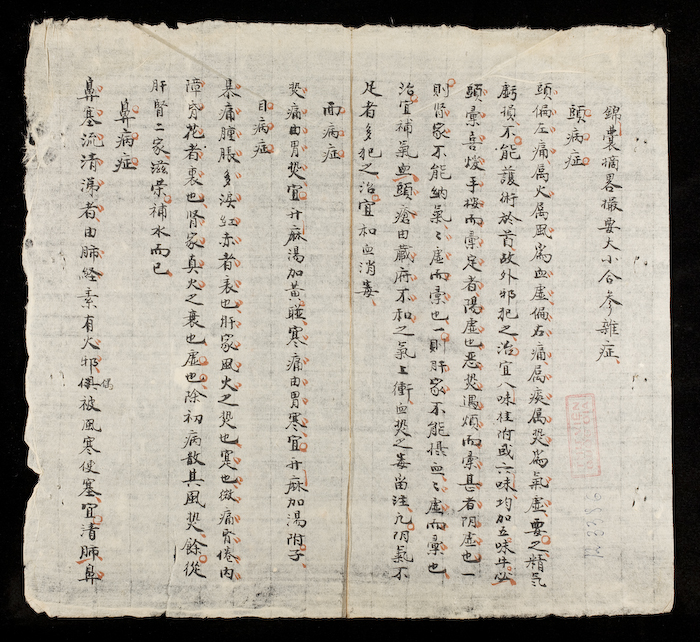 錦囊摘畧撮要大小合参雜症
頭病症
頭偏左痛属火属風爲血虚偏右痛属痰属热爲氣虚要之精氣
虧損不能護衛於首故外邪犯之治宜八味桂附或六味均加五味牛必
頭暈喜煖手按而暈定者陽虚也恶热過煩而暈甚者阴虚也一
則肾家不能納氣〻虚而暈也一則肝家不能摂血〻虚而暈也
治宜補氣血頭瘡由藏府不和之氣上衝血热之毒留注凢阴氣不
足者多犯之治宜和血消毒
面病症
热痛由胃热宜升麻湯加黄連寒痛由胃寒宜升麻加湯附子
目病症
暴痛腫脹多淚紅赤者表也肝家風火之热也寔也微痛昏倦内
障昏花者裏也肾家真火之衰也虚也除初病散其風热餘從
肝肾二家滋荣補水而已
鼻病症
鼻塞流清涕者由肺経素有火邪俱偶被風寒便塞宜清肺鼻